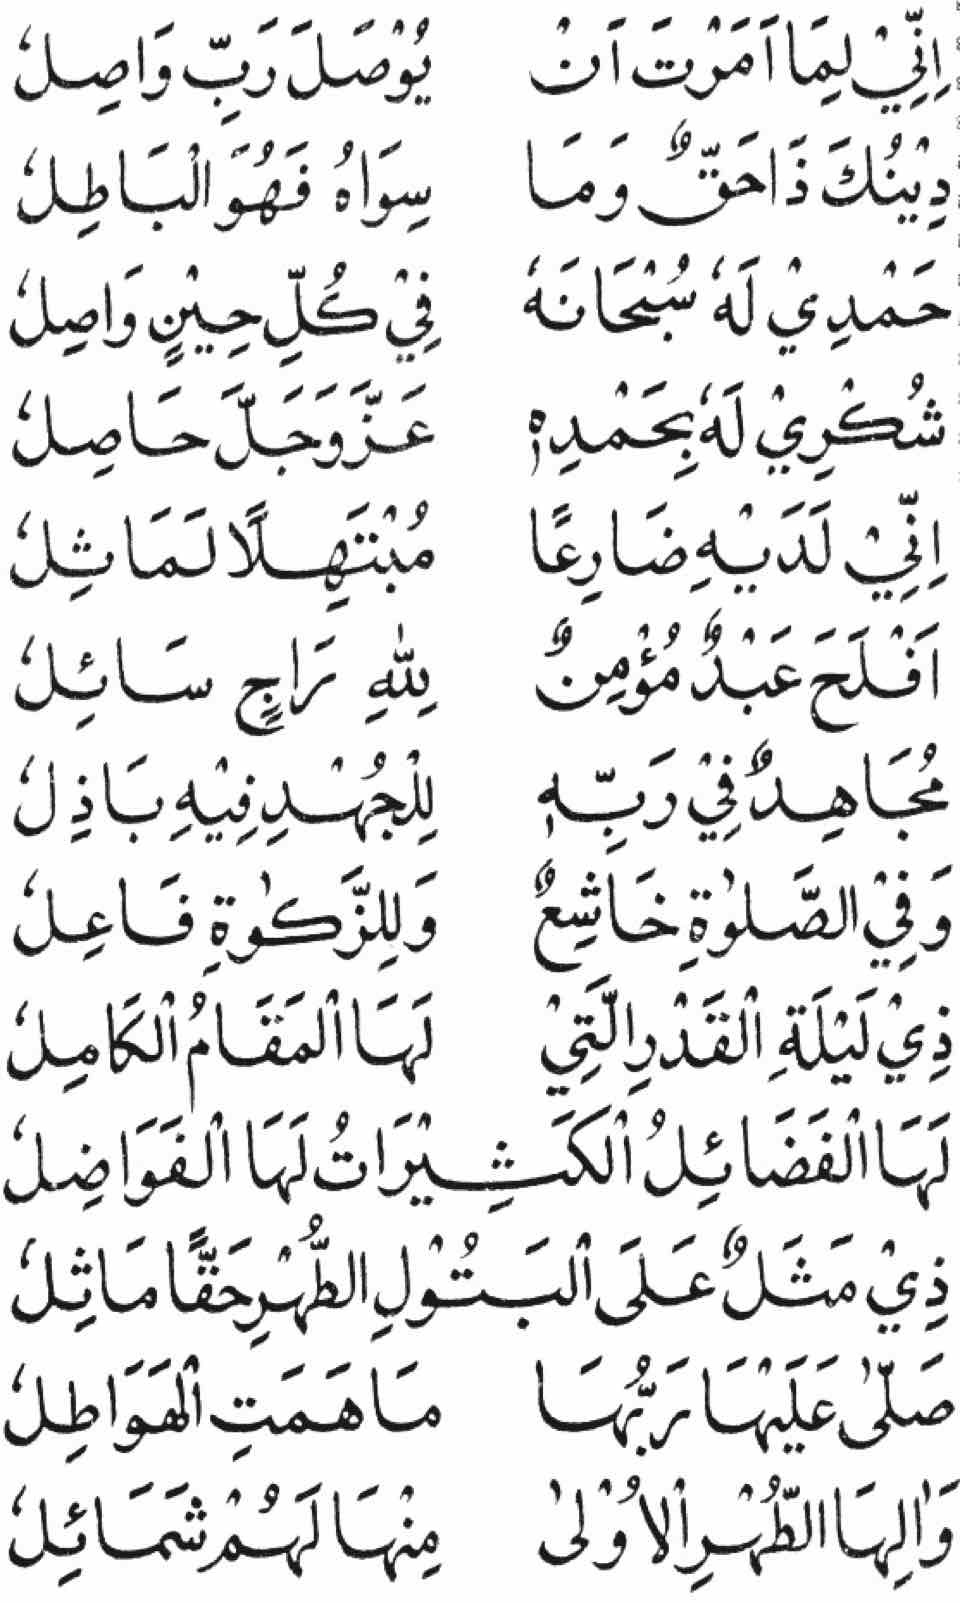 اِنِّيْ لِمَا اَمَرْتَ اَنْ يُوْصَلَ رَبِّ وَاصِلُ
دِيْنُكَ ذَا حَقٌّ وَمَا سِوَاهُ فَهُوَ الْبَاطِلُ
حَمْدِيْ لَهٗ سُبْحَانَهٗ فِيْ كُلِّ حِيْنٍ وَاصِلُ
شُكْرِيْ لَهٗ بِحَمْدِهٖ عَزَّ وَجَلَّ حَاصِلُ
اِنِّيْ لَدَيْهِ ضَارِعًا مُبْتَهِلًا لَمَاثِلُ
اَفْلَحَ عَبْدٌ مُؤْمِنٌ لِلّٰهِ رَاجٍ سَائِلُ
مُجَاهِدٌ فِيْ رَبِّهٖ لِلْجُهْدِ فِيْهِ بَاذِلُ
وَفِيْ الصَّلٰوةِ خَاشِعٌ وَلِلزَّكٰوةِ فَاعِلُ
ذِيْ لَيْلَةِ الْقَدْرِ الَّتِيْ لَهَا الْمَقَامُ الْكَامِلُ
لَهَا الْفَضَائِلُ الْكَثِيْرَاتُ لَهَا الْفَوَاضِلُ
ذِيْ مَثَلٌ عَلَى الْبَتُوْلِ الطُّهْرِ حَقًّا مَاثِلُ
صَلّٰى عَلَيْهَا رَبُّهَا مَا هَمَتِ الْهَوَاطِلُ
وَاٰلِهَا الطُّهْرِ الْاُوْلٰى مِنْهَا لَهُمْ شَمَائِلُ